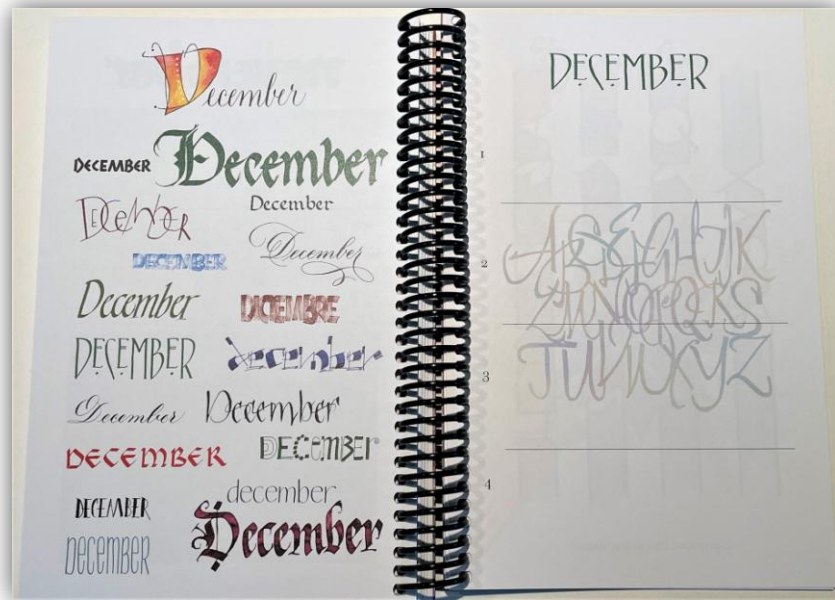 December
DECEMBER December
December
December
DECEMBER
December
December
DICIEMBRE
DECEMBER
december
December
December
DECEMBER
DECEMBER
december
DECEMBER
December
DECEMBER
DECEMBER
1
2
3
4